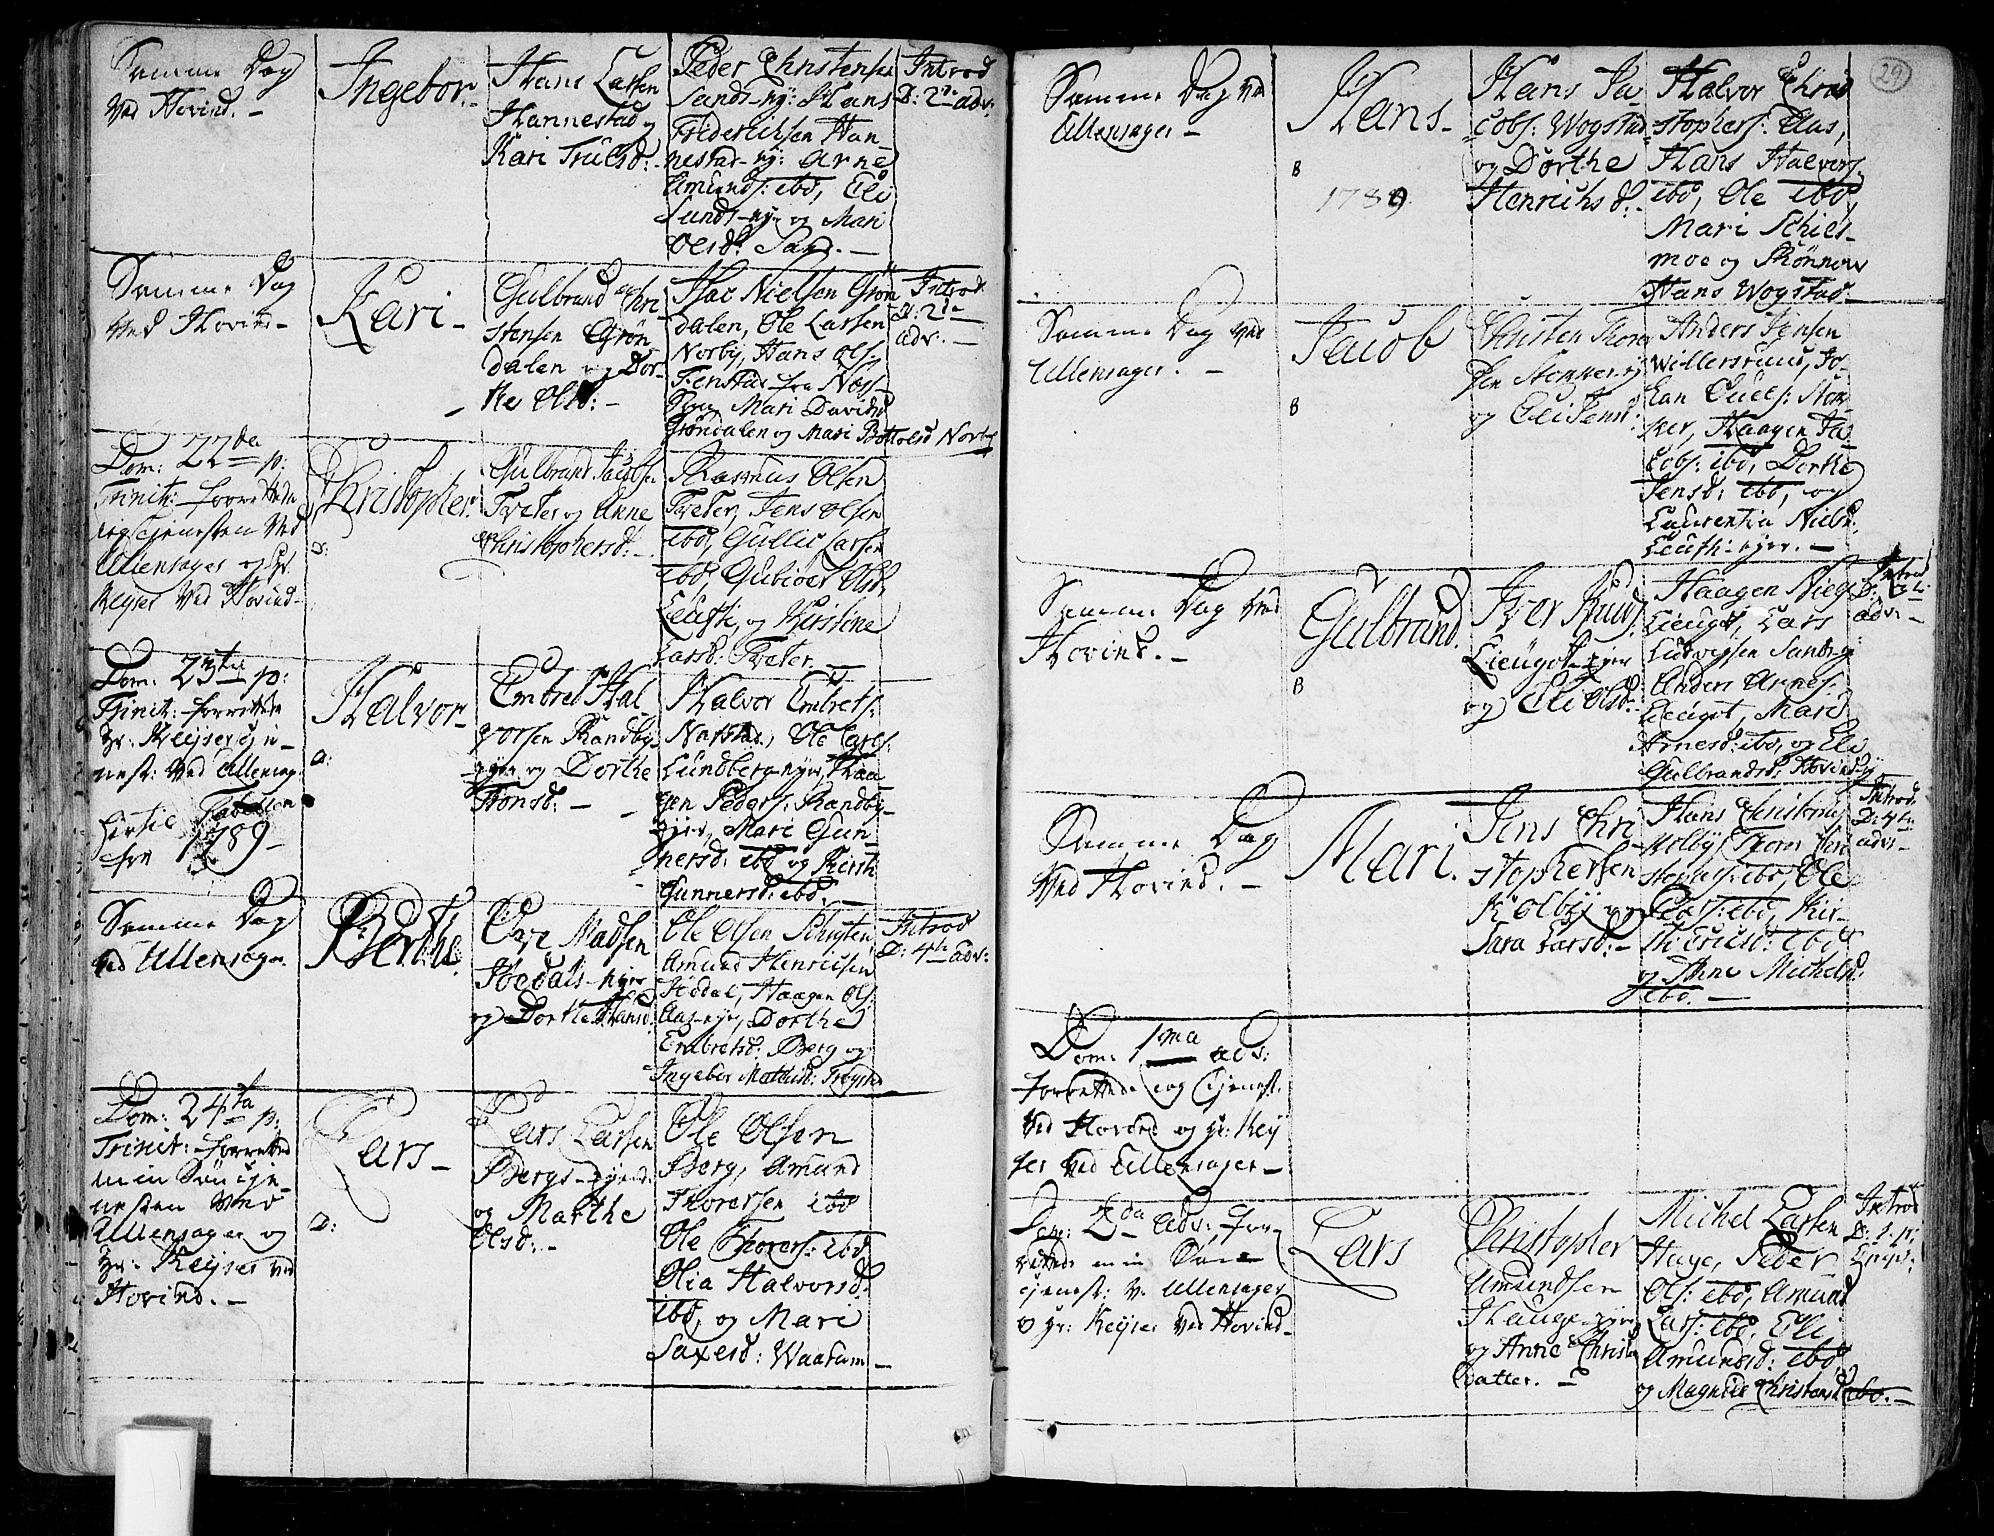 Samme Dag
Ved Hovind. -
Ingebor.
Hans Larsen
Hannestad og
Kari Trulsd: -
Peder Christensen
Sands-ny: Hans
Friderichsen Han-
nestad-ny: Arne
Amunds: ibd, Eli
Sunds-nye og Mari
Olsd: Sand. -
Introd
D: 2de adv:
Samme Dag
Ved Hovind -
Kari -
Gulbrand Chri-
stensen Grøn-
dalen og Dor-
the Olsd: -
Isac Nielsen Grøn
dalen, Ole Larsen
Norby, Hans Ols:
Fenstad fra Næss
Mari Davidsd
Grøndalen og Mari Bottolsd Norby
Introd
D: 2de
adv. -
Dom: 22da p:
Trinit: forrettede
jeg tjenesten Ved
Ullensager og Hr
Keyser Ved Hovind -
Christopher.
D:
Gulbrand Jacobsen
Tveter og Anne
Christophersd: -
Rasmus Olsen
Tveter, Jens Olsen
ibd, Gullic Larsen
ibd, Gubiør Olsd
og Kirstine
Larsd: Tveter. -
Dom: 23tia p:
Trinit: forrettede
Hr: Keyser tje-
nest: Ved Ullensag:
hertil Tabellen
for 1789 -
Halvor -
D:
Embret Hal-
vorsen Randby-
eyer og Dorthe
Tronsd: -
Halvor Embrets:
Nafstad, Ole Carls:
Lundberg-eyer, Haa
gen Peders: Randby-
eyer, Mari Gun-
nersd: ibd og Kirsti
Gunnersd: ibd. -
Samme Dag
Ved Ullensager.
Berthe.
Ove Madsen
Hoedals-eyer
og Dorthe Hansd.
Ole Olsen
Amund Henricsen
Hoedal, Haagen Ols:
Aas-eyer, Dorthe
Embretsd: Berg og
Ingebor
Introd
D: 4te Adv:
Dom: 24ta p:
Trinit: forretted
min Søn tje-
nesten Ved
Ullensager og
Hr: Keyser Ved
Hovind. -
Lars -
D:
Lars Larsen
Bergs-eyende
og Marthe
Olsd: -
Ole Olsen
Berg, Amund
Thoresen ibd
Ole Thores: ibd
Olia Halvorsd:
ibd, og Mari
Saxesd: Waasum -
29
Samme Dag Ved
Ullensager -
Hans -
B
1789
Hans Ja-
cobs: Wogstad
og Dorthe
Henrichsd: -
Halvor Chri
stophers: Aas,
Hans Halvors:
ibd, Ole ibd,
Mari Schies-
moe og
Hans Wogstad -
Samme Dag Ved
Ullensager. -
Jacob
B
Christen Thore
sen Stomper-ey
og Eli Jensd:
Anders Jensen
Willersruud, Jo-
han Stom-
per, Haagen Ja-
cobs: ibd, Dorthe
Jensd: ibd, og
Laurentia Nielsd:
-eyer. -
Samme Dag Ved
Hovind. -
Gulbrand.
B
Iver Knuds:
Lieugot-eyer
og Eli Olsd: -
Haagen Niels
Lieugot, Lars
Ludvigsen Sand-ey
Anders Arnes:
Lieugot, Mari
Arnesd: ibd, og Eli
Gulbrandsd: Hovind-ey
Introd
D: 4te
adv: -
Samme Dag
Ved Hovind. -
Mari.
Jens Chri
stophersen
Kolby og
Sara Larsd: -
Hans Christensen
Kolby, Thorer Chri
stophers: ibd, Ole
Peders: ibd, Kir-
sti Ericsd: ibd
og Anne Michelsd:
ibd. -
Introd:
D: 4te
adv: -
Dom: 1ma adv:
forrettede jeg tjenest:
Ved Hovind og Hr: Key
ser Ved Ullensager -
Dom: 2da Adv: for-
rettede min Søn
tjenest: V. Ullensager
og Hr: Keyser Ved Hovind -
Lars
Christopher
Amundsen
Hauge-eyer
og Anne Christo
Datter. -
Michel Larsen
Hage, Peder
Ols: ibd, Amund
Lars: ibd, Eli
Amundsd: ibd,
og Magnild Christensd ibd. -
Introd
D: 1. p:
Epip: